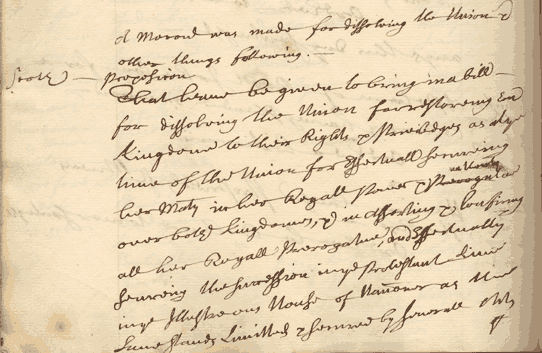 A Motion was made for dissolving the Union &
other things following. —
Scots — Proposition
That leave be given to bring in a bill —
for dissolving the Union for restoring
Kingdome to their Rights & Priviledges as
time of the Union for Effectuall secureing
her Maty in her Royall Power &
over both Kingdomes, & in asserting &
all her Royall Prerogative, and Effectually
secureing the succession in ye Protestant Line
in ye Illustrious House of Hannover as the
same stands Limitted & secured by severall Acts